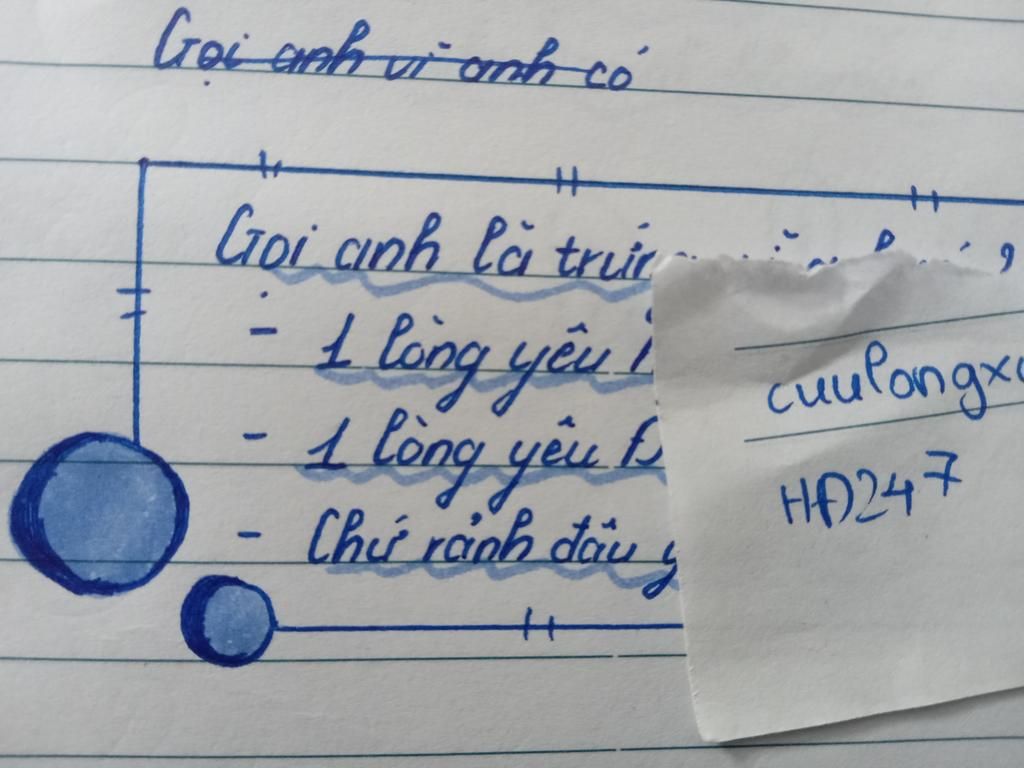 Gọi anh vì anh có
Gọi anh là
- 1 lòng yêu
- 1 lòng yêu
- Chứ rảnh đâu
HĐ247